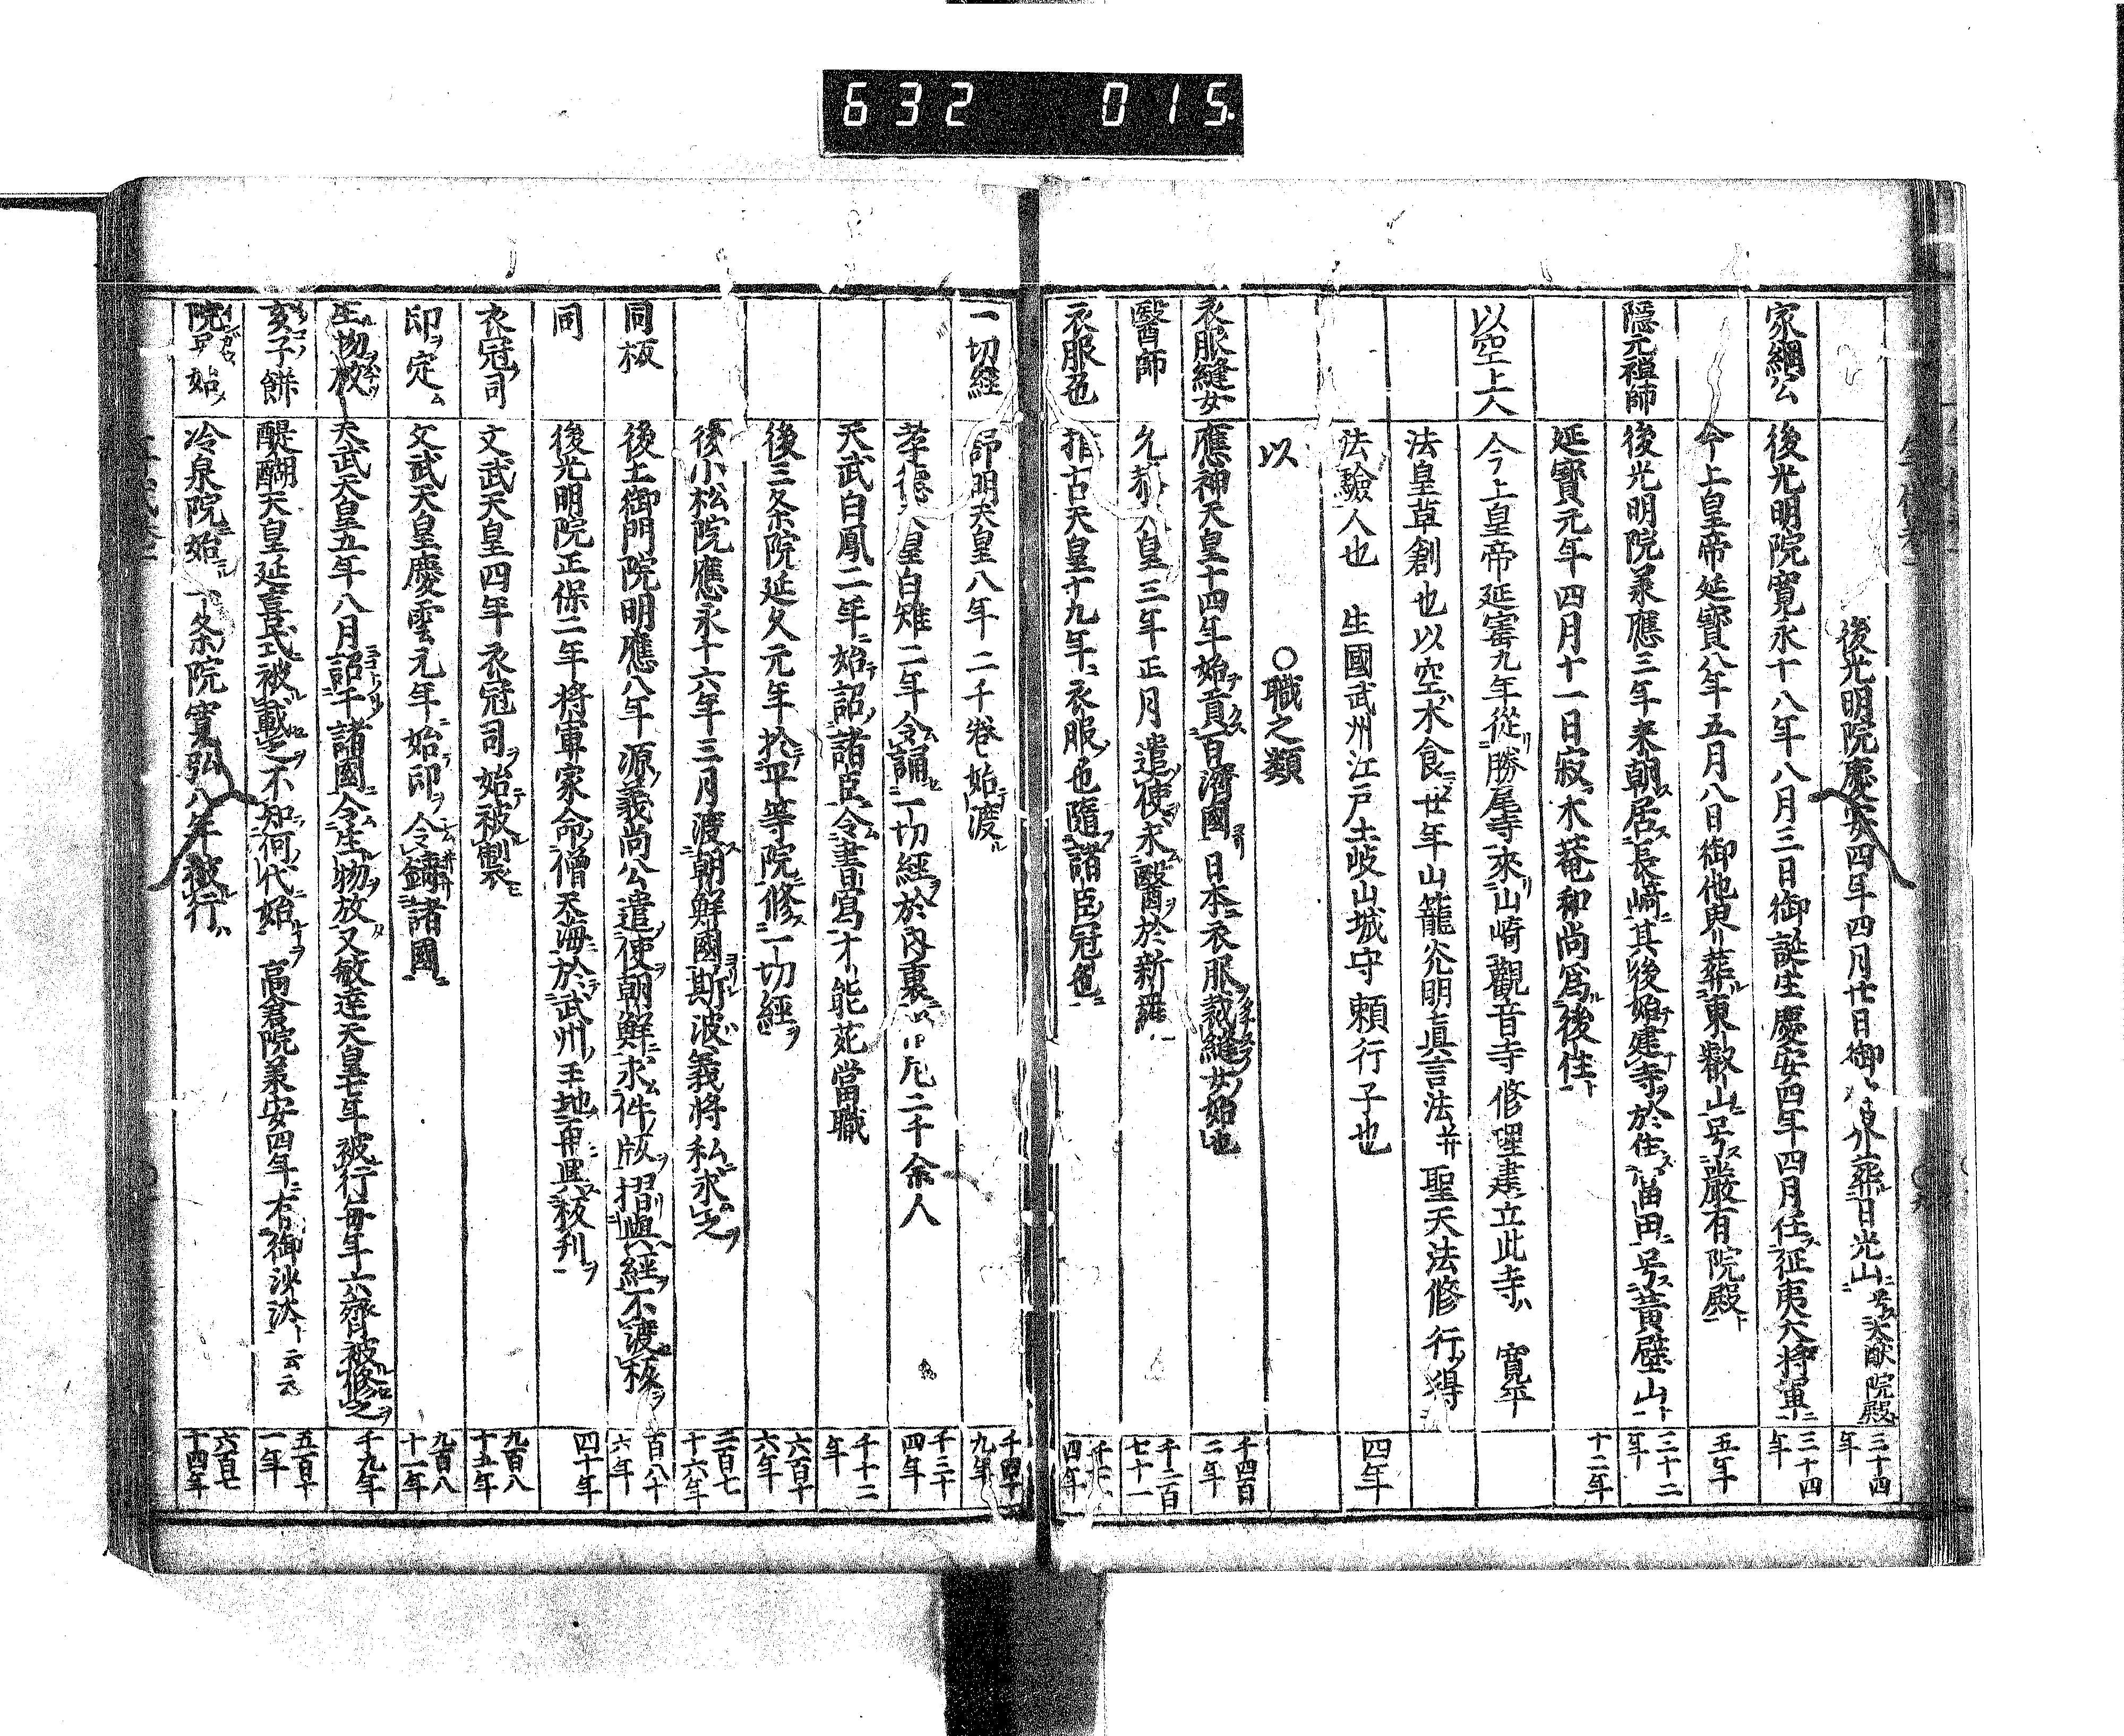 632 015
後光明院慶安四年四月廿日御 葬日光山号大猷院殿 三十四年
家綱公 後光明院寛永十八年八月三日御誕生慶安四年四月任征夷大将軍 三十四年
今上皇帝延寳八年五月八日御他東葬東叡山号嚴有院殿 五年
隱元禅師 後光明院承應三年来朝居長﨑其後始建寺於住 田号黄檗山 三十二年
延寳元年四月十一日寂木菴和尚爲後住 十二年
以空上人 今上皇帝延寳九年從勝尾寺來山崎觀音寺修理建立此寺ハ 寛平
法皇草創也以空木食廿年山籠光明真言法并聖天法修行得
法驗人也 生國武州江戸土岐山城守頼行子也 四年
以 〇職之類
衣服縫女 應神天皇十四年始貢百濟國日本衣服裁縫女始也 千四百二年
醫師 允恭 皇三年正月遣使求醫於新羅 千二百七十一
衣服色 推古天皇十九年衣服色隨諸臣冠色
一切経 舒明天皇八年二千巻始渡
孝德 皇白雉二年令誦一切經於内裏 尼二千余人 千三十四年
天武白鳳二年始詔諸臣令書寫才能茫當職 千十二年
後三条院延久元年於平等院修一切經 六百十六年
後小松院應永十六年三月渡朝鮮國斯波義将私求之 二百七十六年
同板 後土御門院明應八年源義尚公遣使朝鮮求件版摺與經不渡板 百八十六年
同 後光明院正保二年将軍家命僧天海於武州王地再興板刊 四十年
衣冠司 文武天皇四年衣冠司始被製 九百八十五年
印定 文武天皇慶雲元年始印令鑄諸國 九百八十一年
生物放 天武天皇五年八月詔千諸國令生物放又敏達天皇七年被行毎年六齊被修之 千九年
亥子餅 醍醐天皇延喜式被載之不知何代始 高倉院承安四年右御沙汰云云 五百十一年
院号始 冷泉院始 一条院寛弘八年被行 六百七十四年